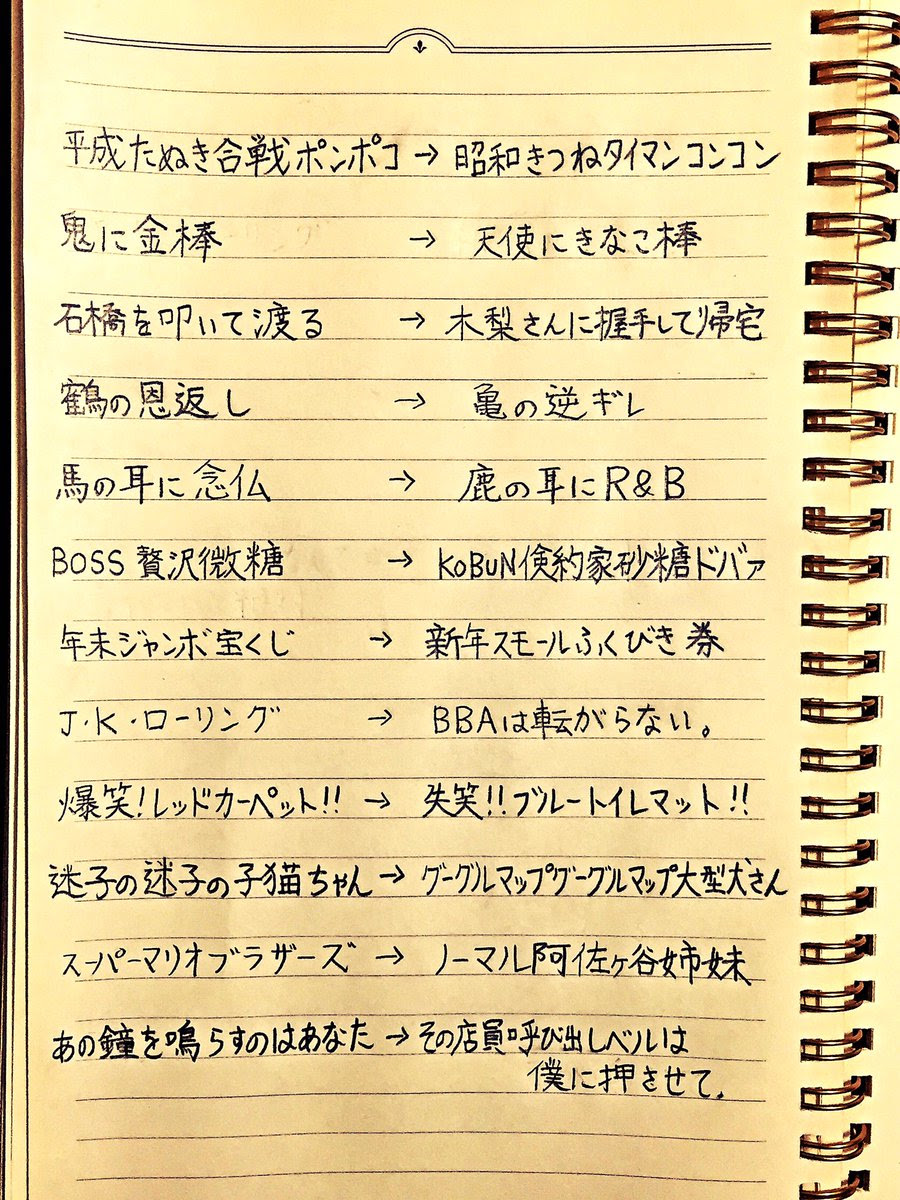 平成たぬき合戦ポンポコ → 昭和きつねタイマンコンコン
鬼に金棒 → 天使にきなこ棒
石橋を叩いて渡る → 木梨さんに握手して帰宅
鶴の恩返し → 亀の逆ギレ
馬の耳に念仏 → 鹿の耳にR&B
BOSS贅沢微糖 → KOBUN倹約家砂糖ドバァ
年末ジャンボ宝くじ → 新年スモールふくびき券
J・K・ローリング → BBAは転がらない。
爆笑!レッドカーペット!! → 失笑!!ブルートイレマット!!
迷子の迷子の子猫ちゃん → グーグルマップグーグルマップ大型犬さん
スーパーマリオブラザーズ → ノーマル阿佐ヶ谷姉妹
あの鐘を鳴らすのはあなた → その店員呼び出しベルは
僕に押させて.